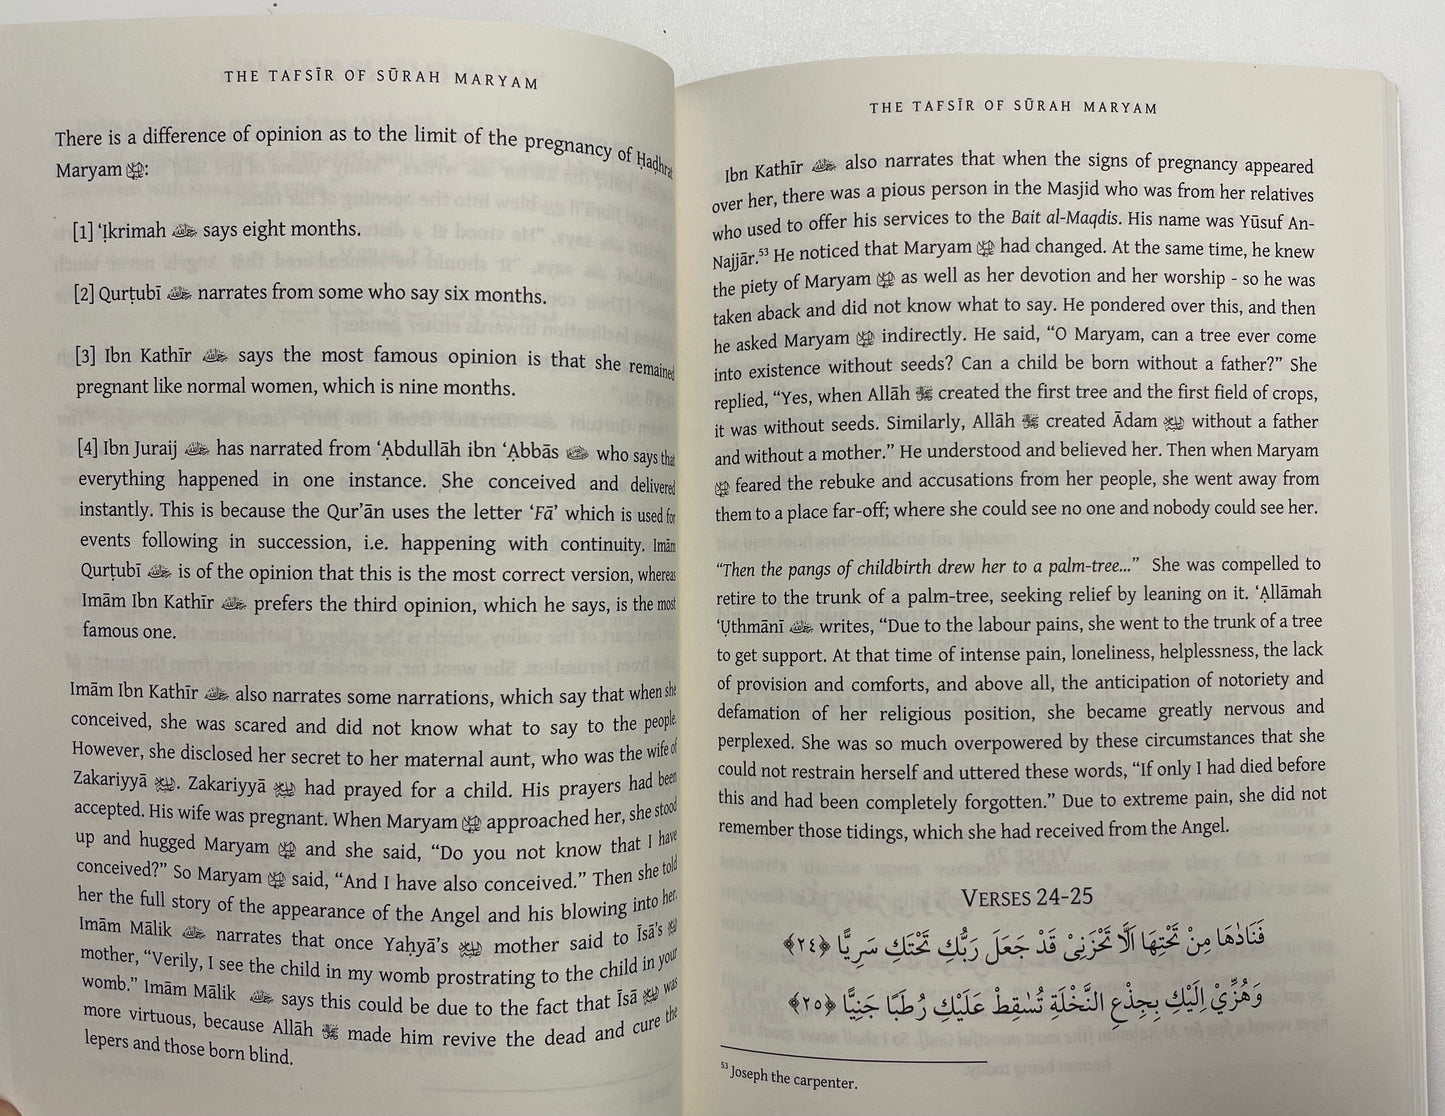 THE TAFSĪR OF SŪRAH MARYAM
There is a difference of opinion as to the limit of the pregnancy of Ḥaḍhrat
Maryam :
[1] ‘Ịkrimah says eight months.
[2] Qurṭubī narrates from some who say six months.
[3] Ibn Kathīr says the most famous opinion is that she remained
pregnant like normal women, which is nine months.
[4] Ibn Juraij has narrated from ‘Ạbdullāh ibn ‘Ạbbās who says that
everything happened in one instance. She conceived and delivered
instantly. This is because the Qur’ān uses the letter ‘Fā’ which is used for
events following in succession, i.e. happening with continuity. Imām
Qurṭubī is of the opinion that this is the most correct version, whereas
Imām Ibn Kathīr prefers the third opinion, which he says, is the most
famous one.
Imām Ibn Kathīr also narrates some narrations, which say that when she
conceived, she was scared and did not know what to say to the people.
However, she disclosed her secret to her maternal aunt, who was the wife of
Zakariyyā . Zakariyyā had prayed for a child. His prayers had been
accepted. His wife was pregnant. When Maryam approached her, she stood
up and hugged Maryam and she said, “Do you not know that I have
conceived?” So Maryam said, “And I have also conceived.” Then she told
her the full story of the appearance of the Angel and his blowing into her.
Imām Mālik narrates that once Yaḥyā’s mother said to Īsā’s
mother, “Verily, I see the child in my womb prostrating to the child in your
womb.” Imām Mālik says this could be due to the fact that Īsā was
more virtuous, because Allāh made him revive the dead and cure the
lepers and those born blind.
THE TAFSĪR OF SŪRAH MARYAM
Ibn Kathīr also narrates that when the signs of pregnancy appeared
over her, there was a pious person in the Masjid who was from her relatives
who used to offer his services to the Bait al-Maqdis. His name was Yūsuf An-
Najjār.53 He noticed that Maryam had changed. At the same time, he knew
the piety of Maryam as well as her devotion and her worship - so he was
taken aback and did not know what to say. He pondered over this, and then
he asked Maryam indirectly. He said, “O Maryam, can a tree ever come
into existence without seeds? Can a child be born without a father?” She
replied, “Yes, when Allāh created the first tree and the first field of crops,
it was without seeds. Similarly, Allāh created Ādam without a father
and without a mother.” He understood and believed her. Then when Maryam
feared the rebuke and accusations from her people, she went away from
them to a place far-off; where she could see no one and nobody could see her.
“Then the pangs of childbirth drew her to a palm-tree...” She was compelled to
retire to the trunk of a palm-tree, seeking relief by leaning on it. ‘Ạllāmah
‘Ụthmānī writes, “Due to the labour pains, she went to the trunk of a tree
to get support. At that time of intense pain, loneliness, helplessness, the lack
of provision and comforts, and above all, the anticipation of notoriety and
defamation of her religious position, she became greatly nervous and
perplexed. She was so much overpowered by these circumstances that she
could not restrain herself and uttered these words, “If only I had died before
this and had been completely forgotten.” Due to extreme pain, she did not
remember those tidings, which she had received from the Angel.
VERSES 24-25
فَنَادٰهَا مِنْ تَحْتِهَا اَلَّا تَحْزَنِيْ قَدْ جَعَلَ رَبُّكِ تَحْتَكِ سَرِيًّا ﴿٢٤﴾
وَهُزِّيْ اِلَيْكِ بِجِذْعِ النَّخْلَةِ تُسٰقِطْ عَلَيْكِ رُطَبًا جَنِيًّا ﴿٢٥﴾
53 Joseph the carpenter.